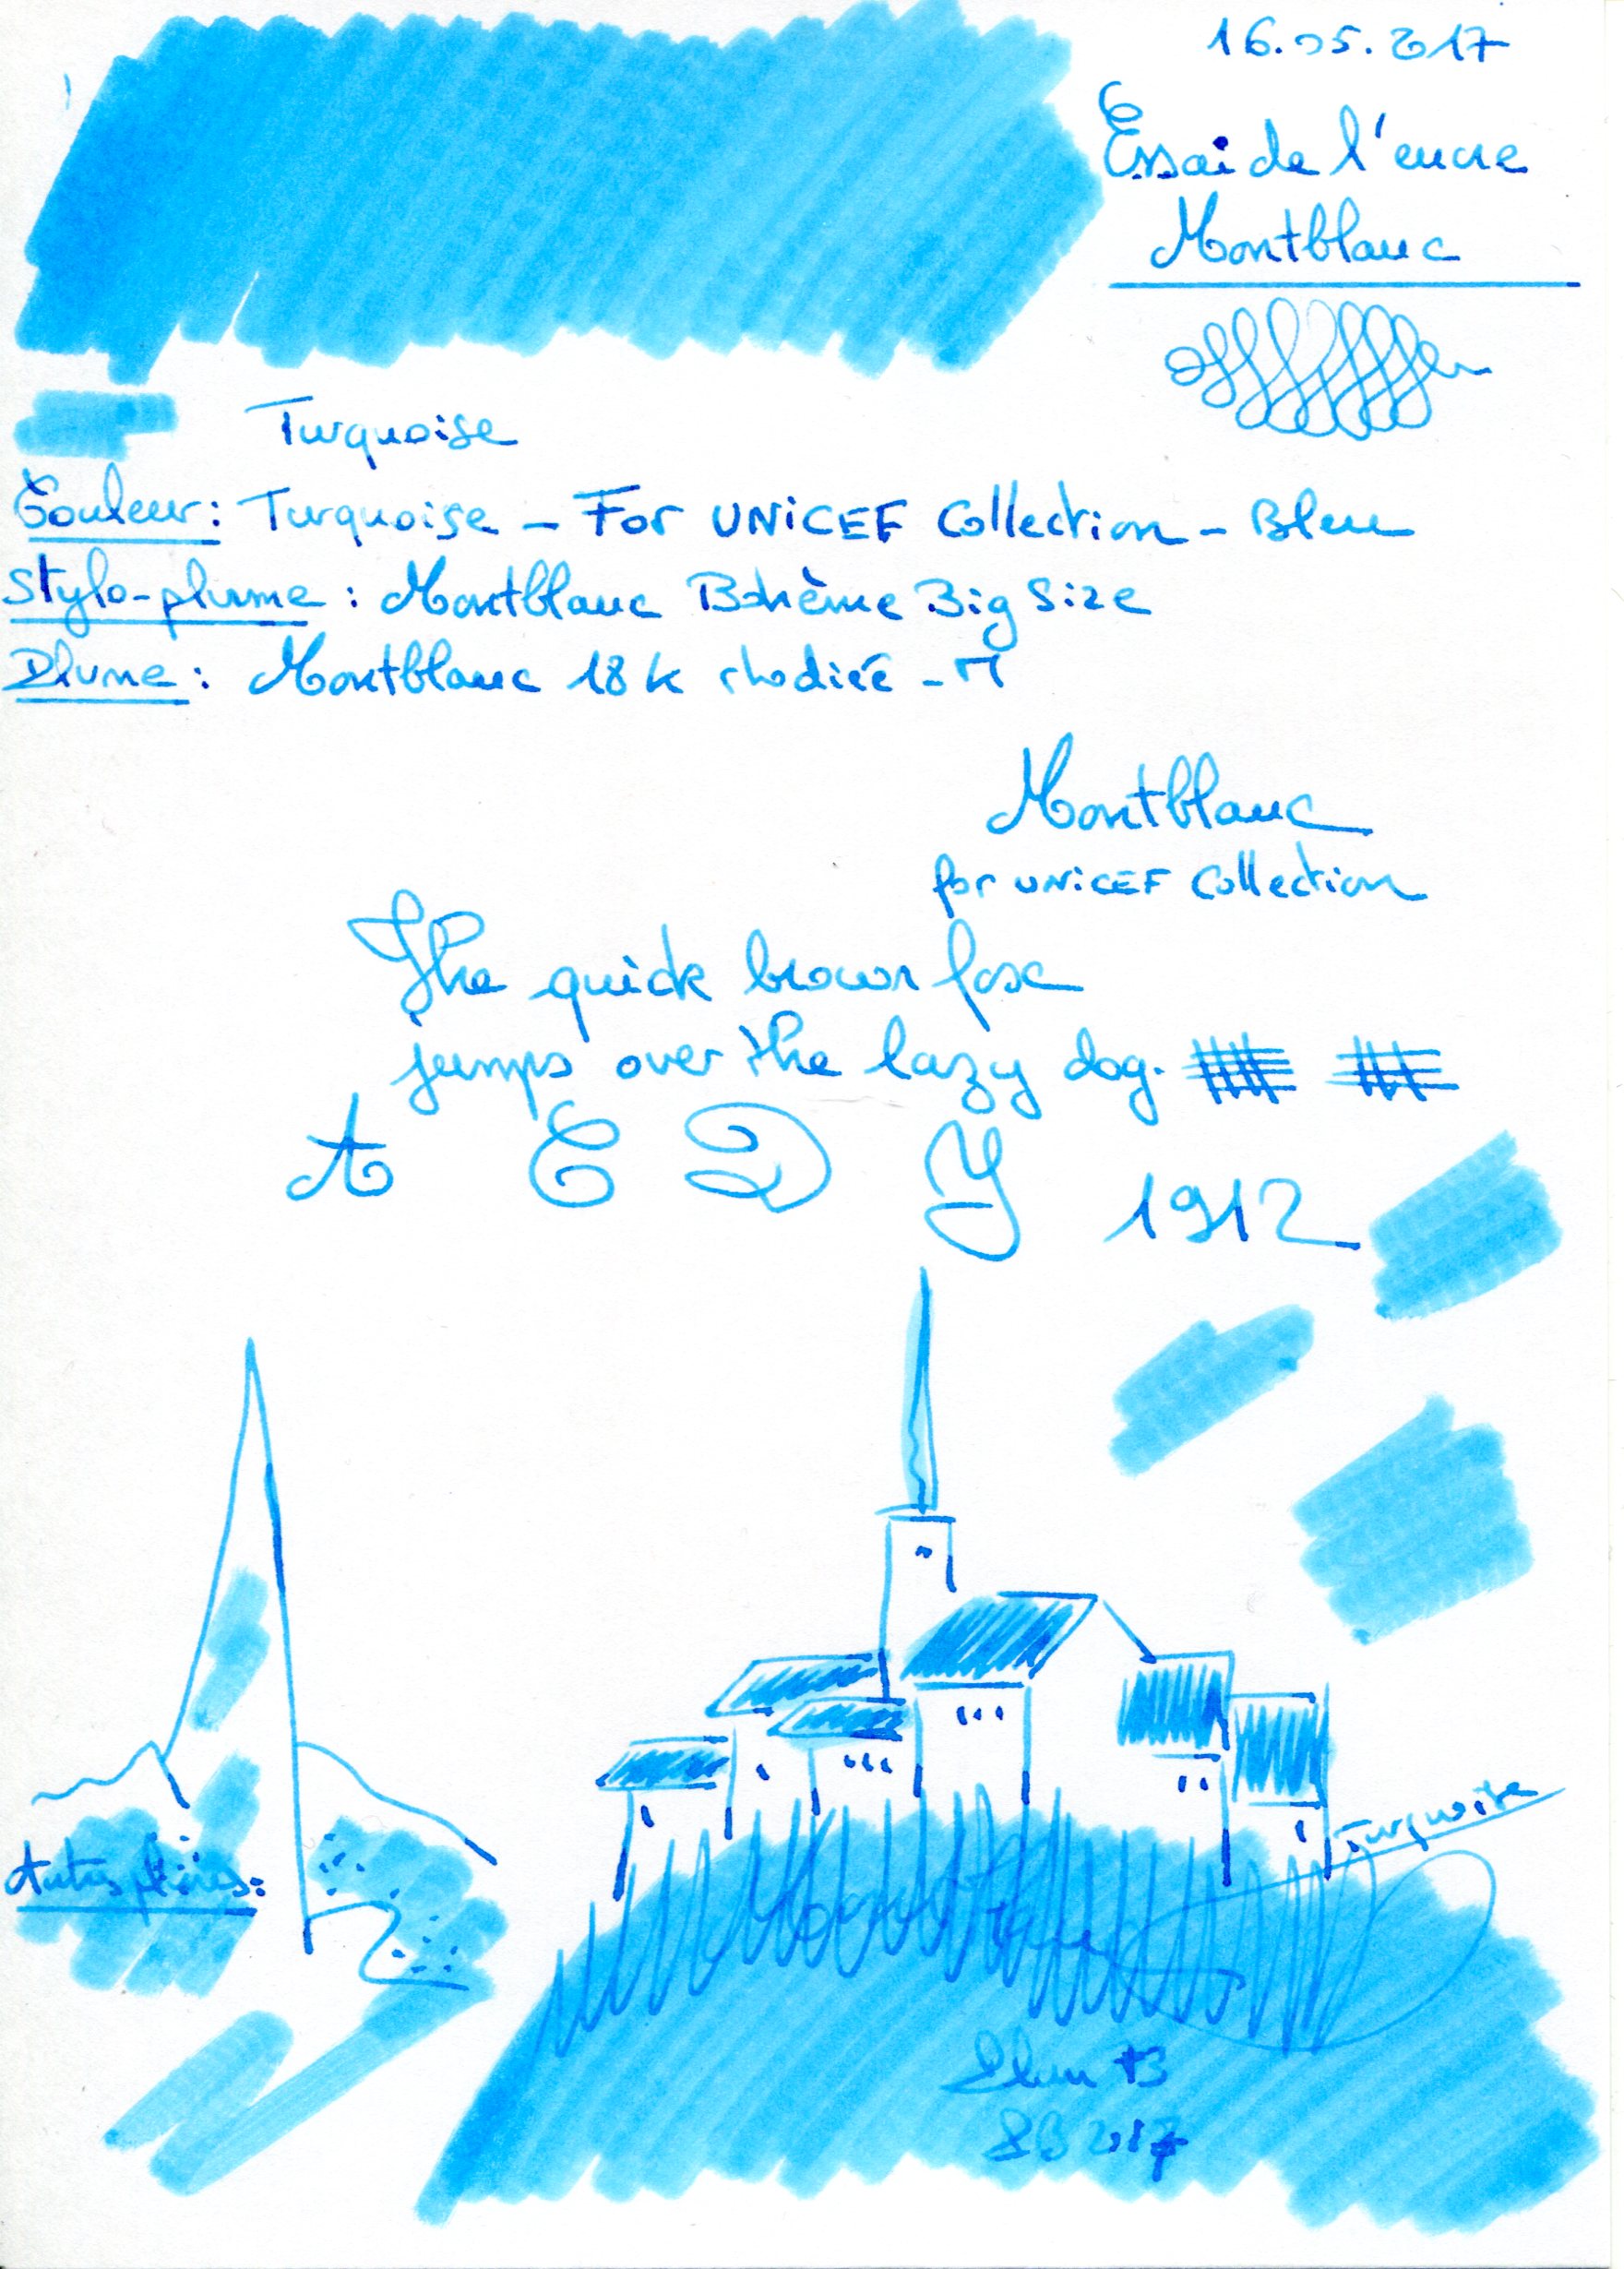 16.05.2017
Essai de l'encre
Montblanc
Turquoise
Couleur: Turquoise - For UNiCEF Collection - Bleu
Stylo-plume: Montblanc Bohème Big Size
Plume: Montblanc 18k rhodiée - M
Montblanc
for UNiCEF Collection
The quick brown fox
jumps over the lazy dog.
A E D Y 1912
Turquoise
2017